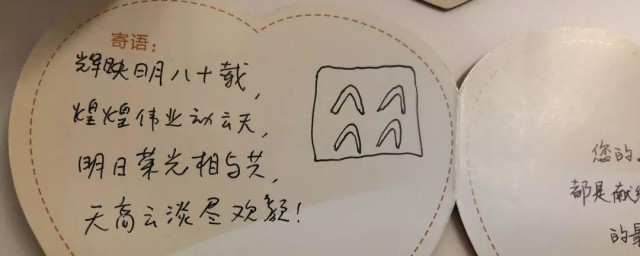 寄语:
辉映日月八十载,
煌煌伟业动云天,
明日荣光相与共,
天高云淡尽欢颜!
您的
都是献
的最